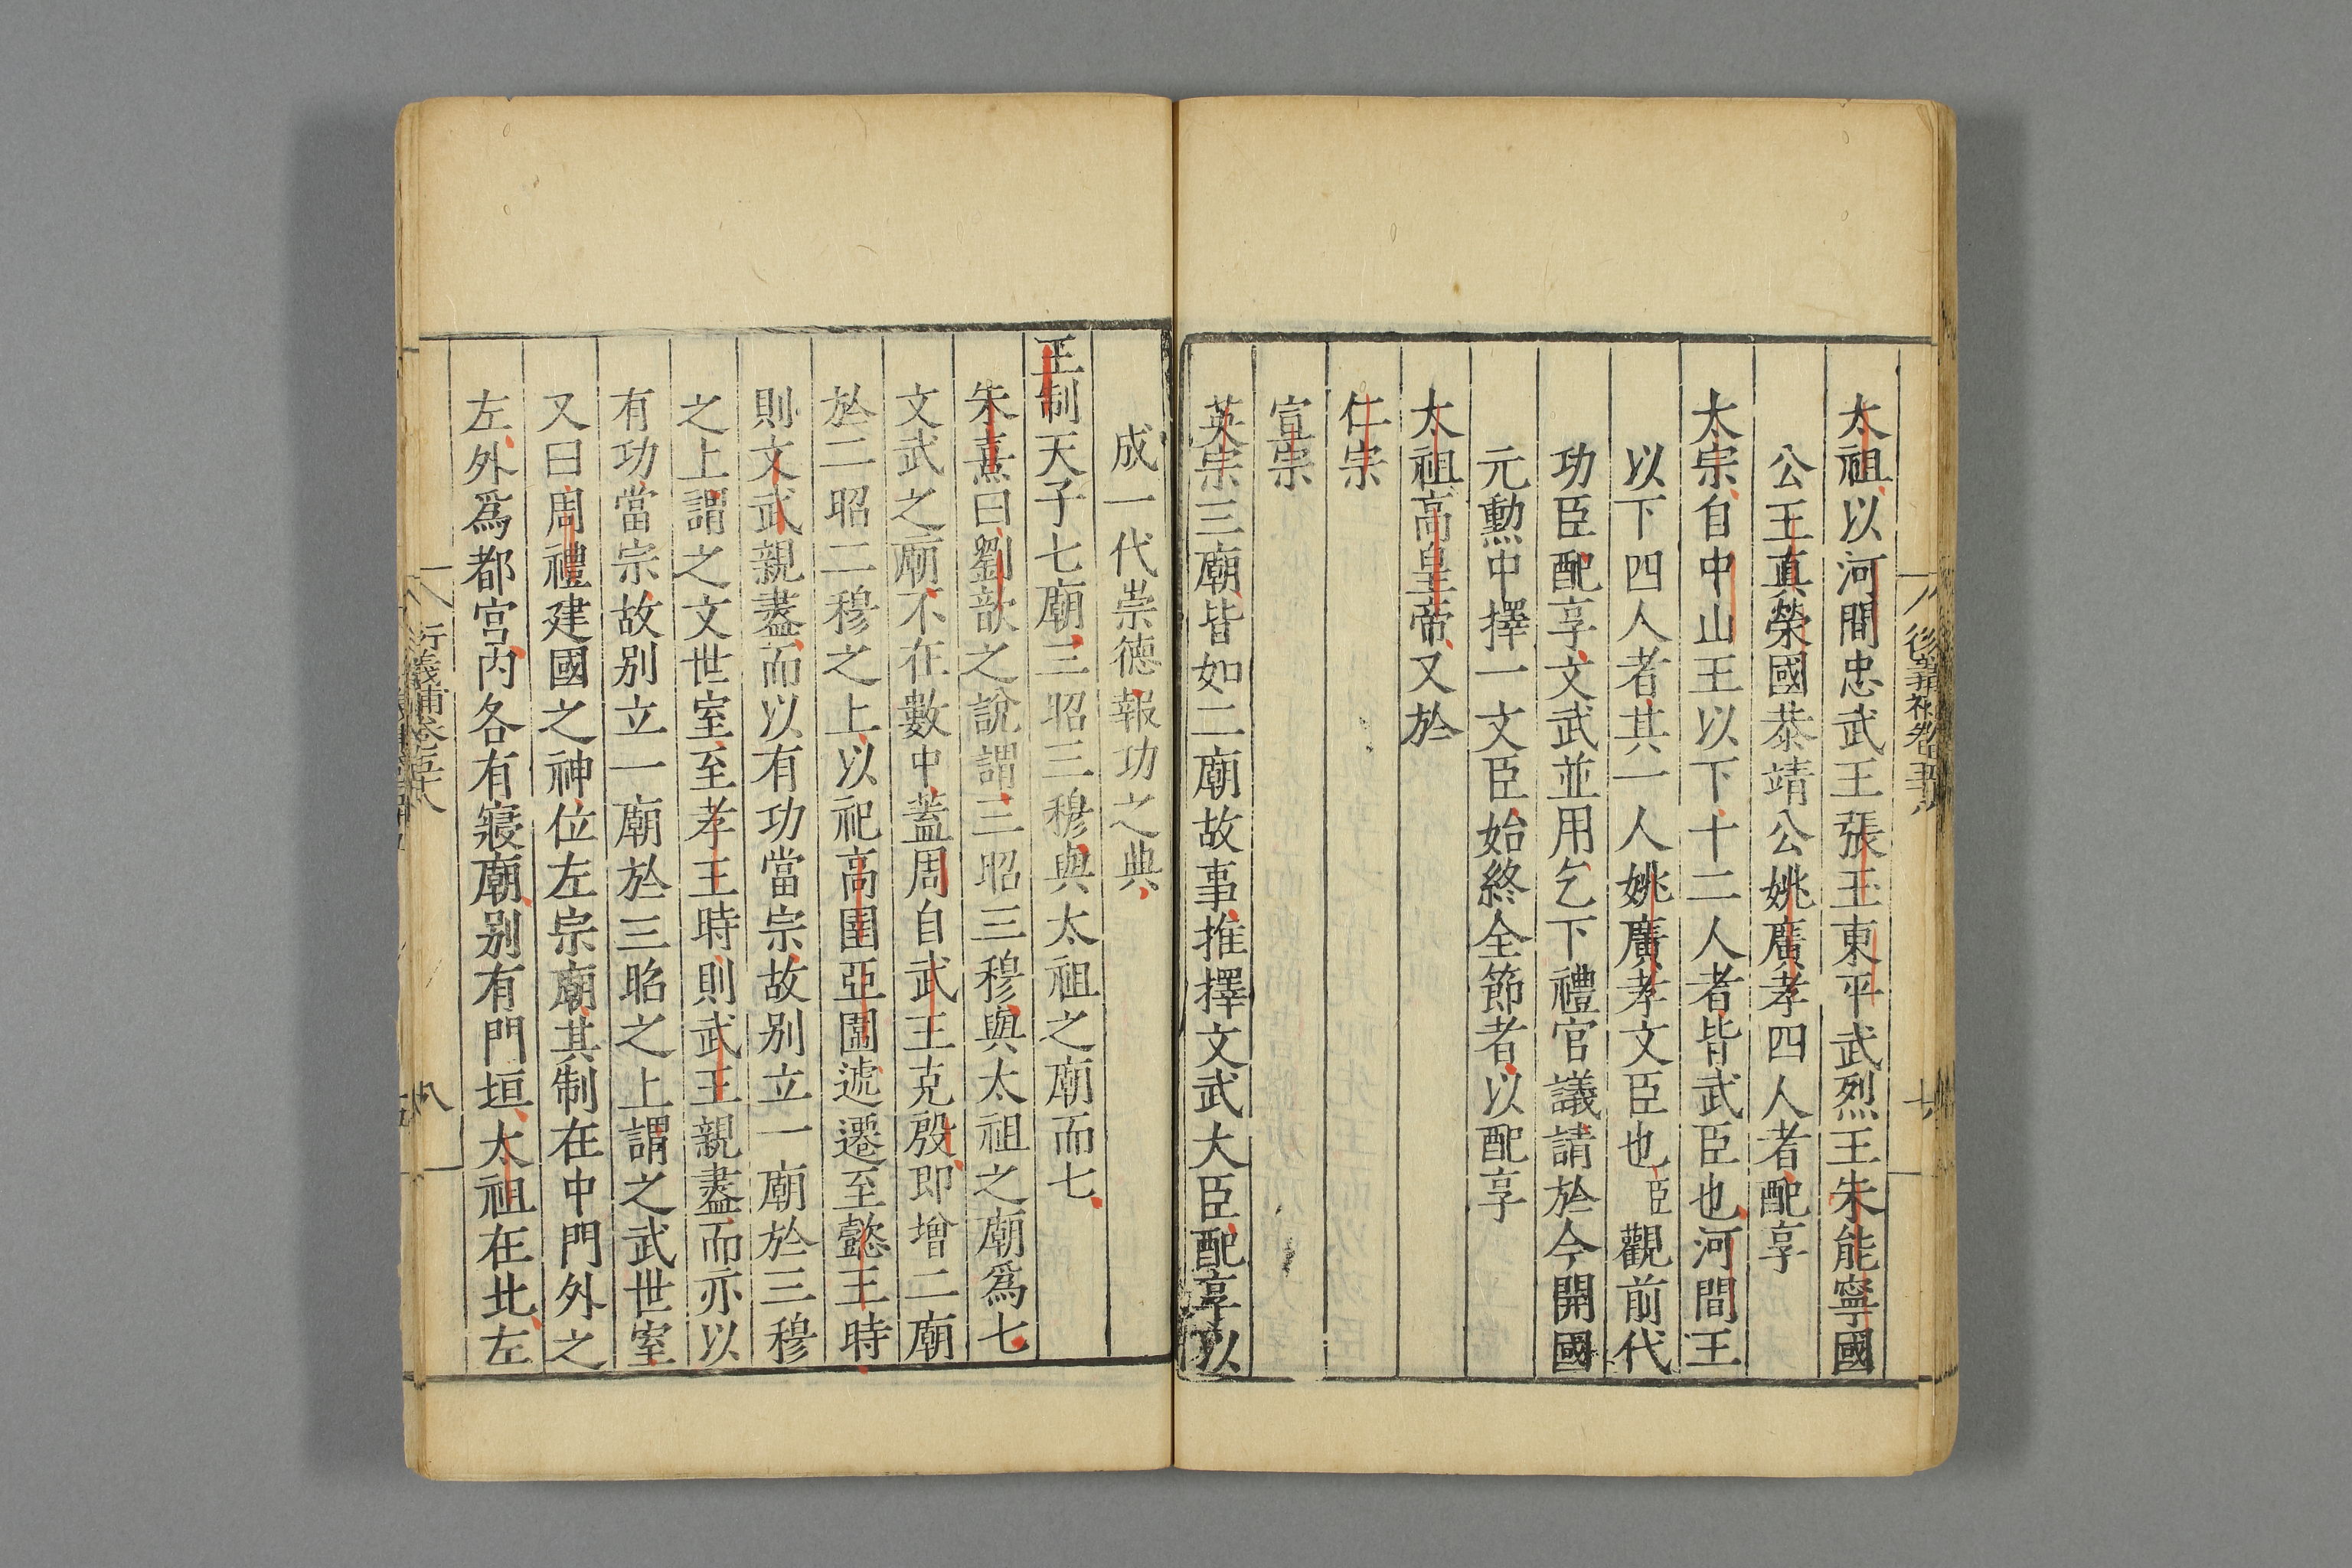 太祖以河間忠武王張玉東平武烈王朱能寧國
公王真榮國恭靖公姚廣孝四人者配享
太宗自中山王以下十二人者皆武臣也河間王
以下四人者其一人姚廣孝文臣也臣觀前代
功臣配享文武並用乞下禮官議請於今開國
元勲中擇一文臣始終全節者以配享
太祖高皇帝又於
仁宗
宣宗
英宗三廟皆如二廟故事推擇文武大臣配享以
成一代崇德報功之典
王制天子七廟三昭三穆與太祖之廟而七
朱熹曰劉歆之說謂三昭三穆與太祖之廟爲七
文武之廟不在數中蓋周自武王克殷即增二廟
於二昭二穆之上以祀高圉亞圉遞遷至懿王時
則文武親盡而以有功當宗故别立一廟於三穆
之上謂之文世室至孝王時則武王親盡而亦以
有功當宗故别立一廟於三昭之上謂之武世室
又曰周禮建國之神位左宗廟其制在中門外之
左外爲都宫内各有寢廟别有門垣太祖在北左
衍義補卷五十八